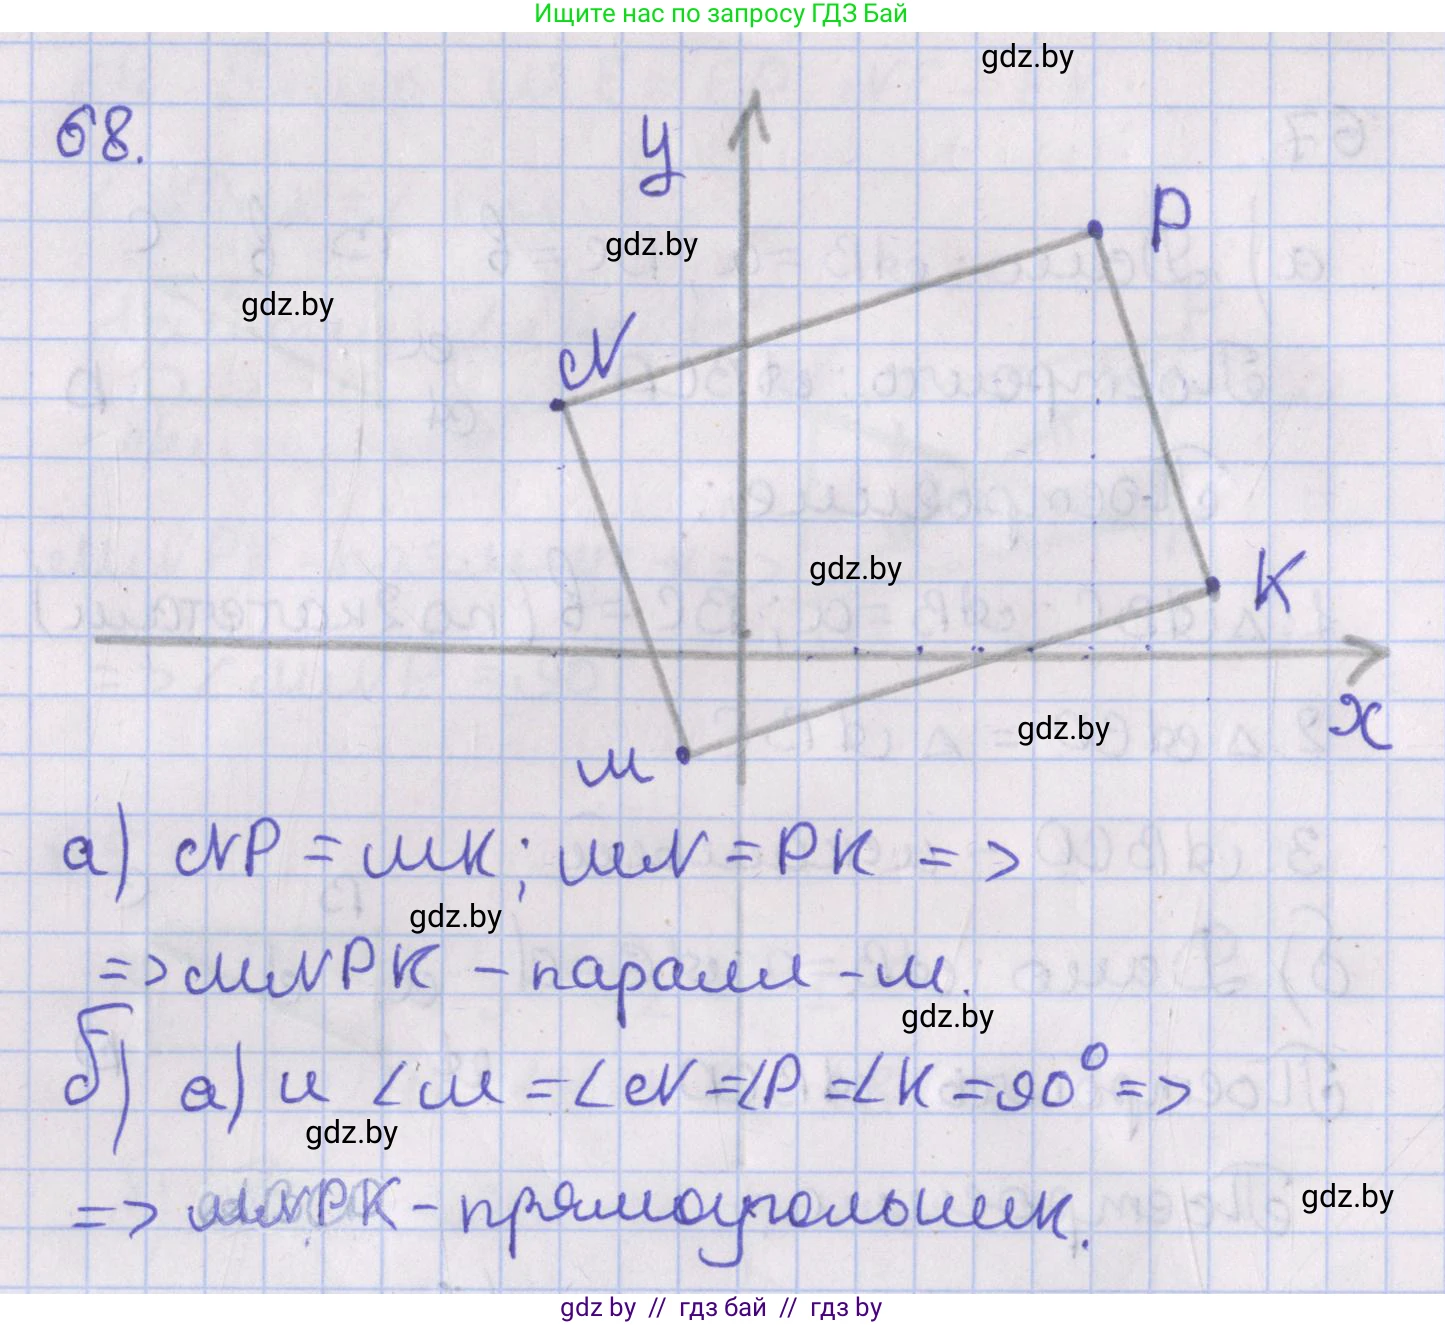 Ищите нас по запросу ГДЗ Бай
gdz.by
68.
y
P
gdz.by
gdz.by
N
K
gdz.by
x
gdz.by
M
а) NP = MK; MN = PK =>
gdz.by
=> MNPK - паралл-м.
gdz.by
б) а) и ∠M = ∠N = ∠P = ∠K = 90° =>
gdz.by
=> MNPK - прямоугольник.
gdz.by
gdz by // гдз бай // гдз by